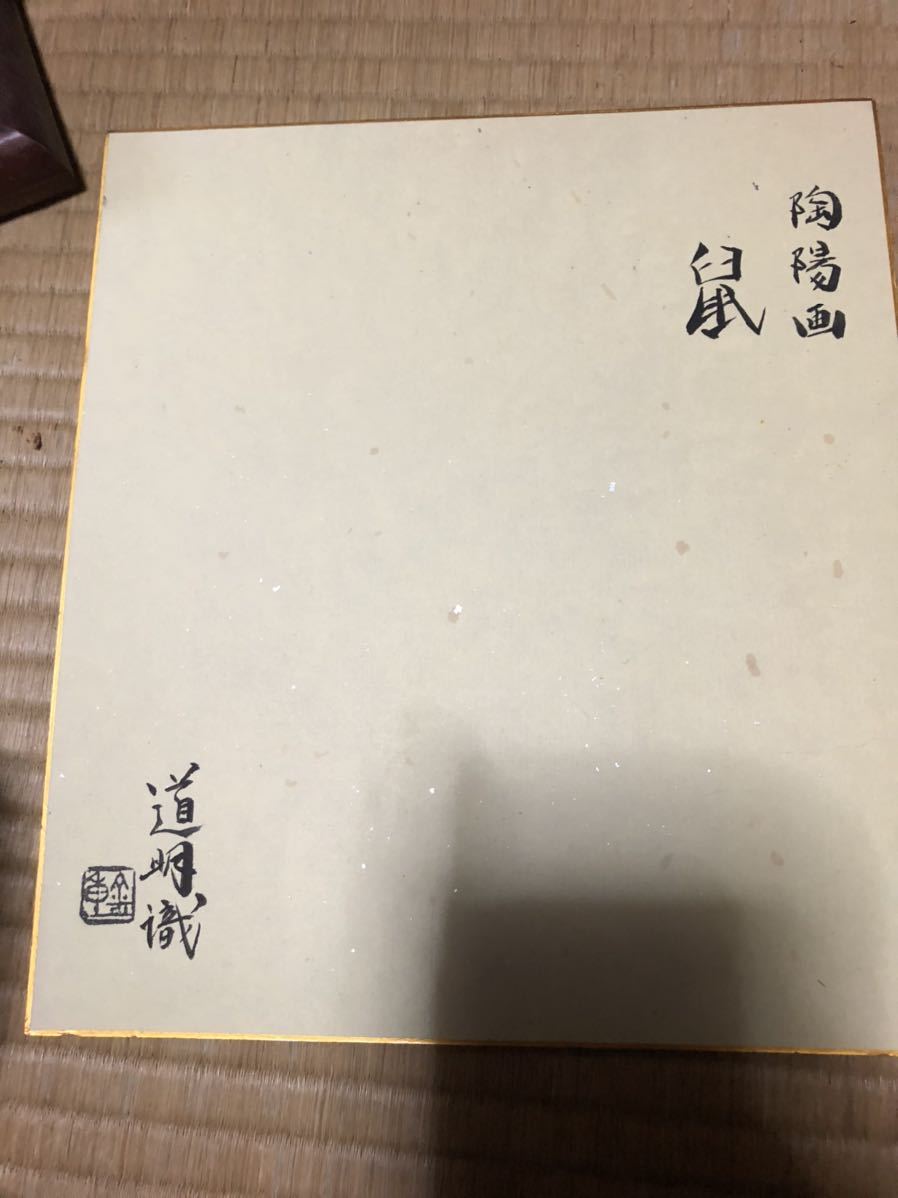 陶陽画
鼠
道明識